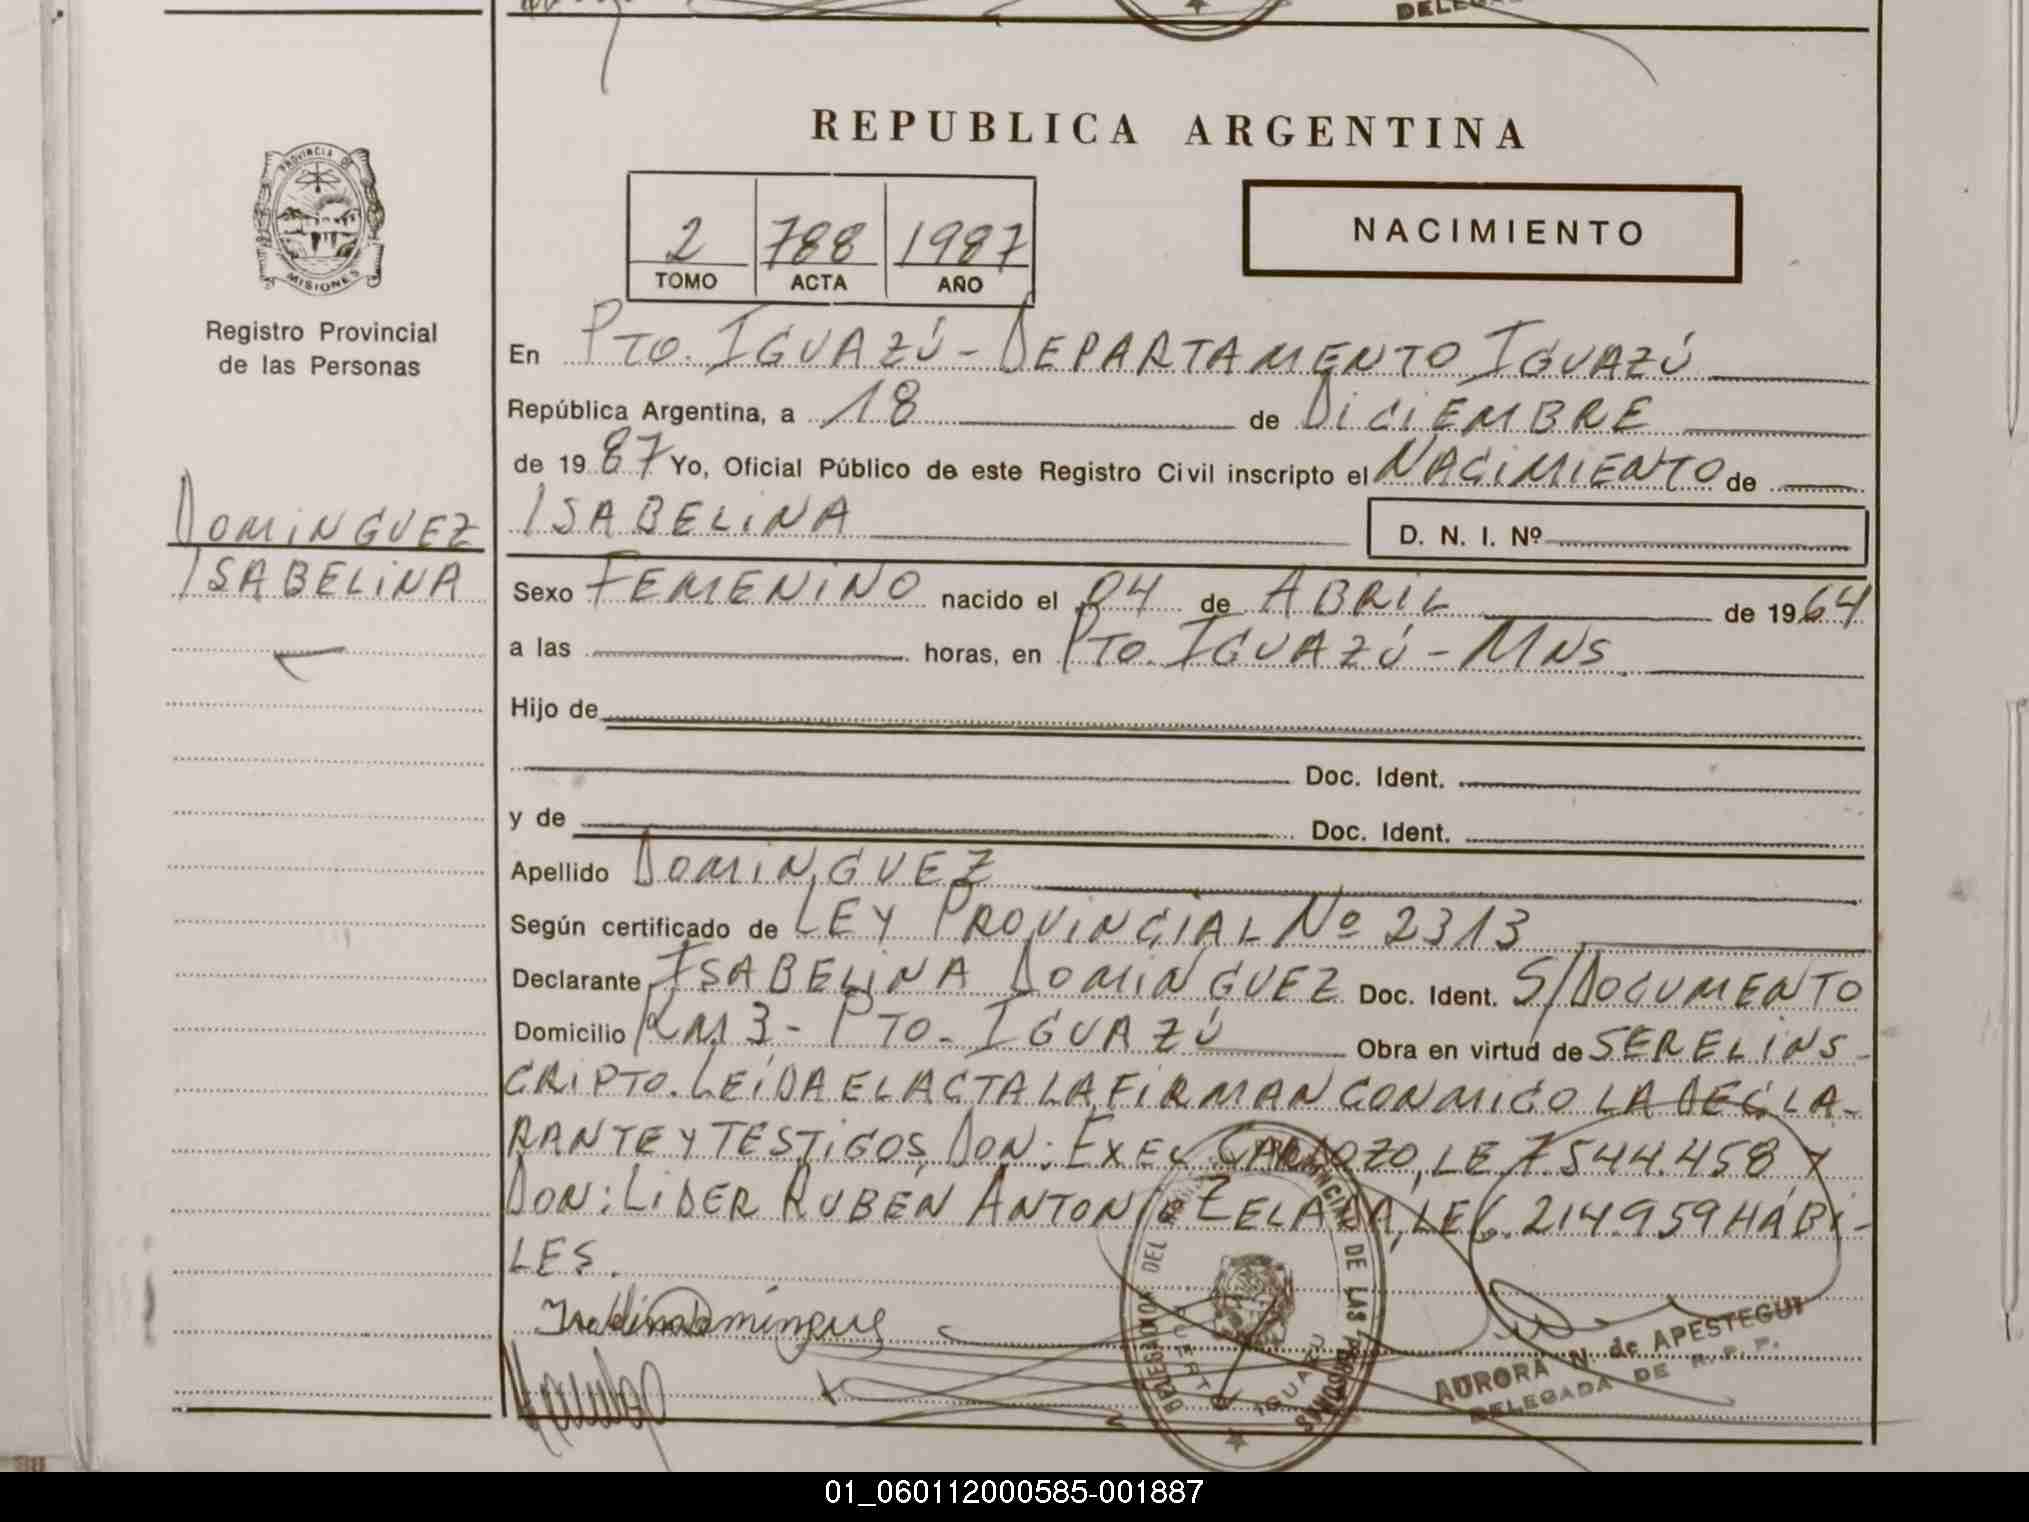 DELEGA
REPUBLICA ARGENTINA
PROVINCIA DE
MISIONES
2 788 1987
TOMO ACTA AÑO
NACIMIENTO
Registro Provincial
de las Personas
En Pto. Iguazú - Departamento Iguazú
República Argentina, a 18 de Diciembre
de 1987 Yo, Oficial Público de este Registro Civil inscripto el Nacimiento de
Dominguez
Isabelina
ISABELINA
D. N. I. Nº
Sexo FEMENINO nacido el 04 de ABRIL de 1964
a las horas, en Pto. Iguazú - Mns
Hijo de
Doc. Ident.
y de Doc. Ident.
Apellido DOMINGUEZ
Según certificado de LEY PROVINCIAL Nº 2313
Declarante ISABELINA DOMINGUEZ Doc. Ident. S/DOCUMENTO
Domicilio Km 3 - Pto. Iguazú Obra en virtud de SER EL INS-
CRIPTO. LEÍDA EL ACTA LA FIRMAN CONMIGO LA DECLA-
RANTE Y TESTIGOS DON: EXEL CARDOZO, LE 7.544.458 Y
DON: LIDER RUBÉN ANTONIO ZELADA, LE 6.214959 HÁBI-
LES.
Isabelina Dominguez
DELEGACION DEL REGISTRO PROVINCIAL DE LAS PERSONAS
PUERTO IGUAZU
AURORA N. de APESTEGUI
DELEGADA DE R. P. P.
01_060112000585-001887